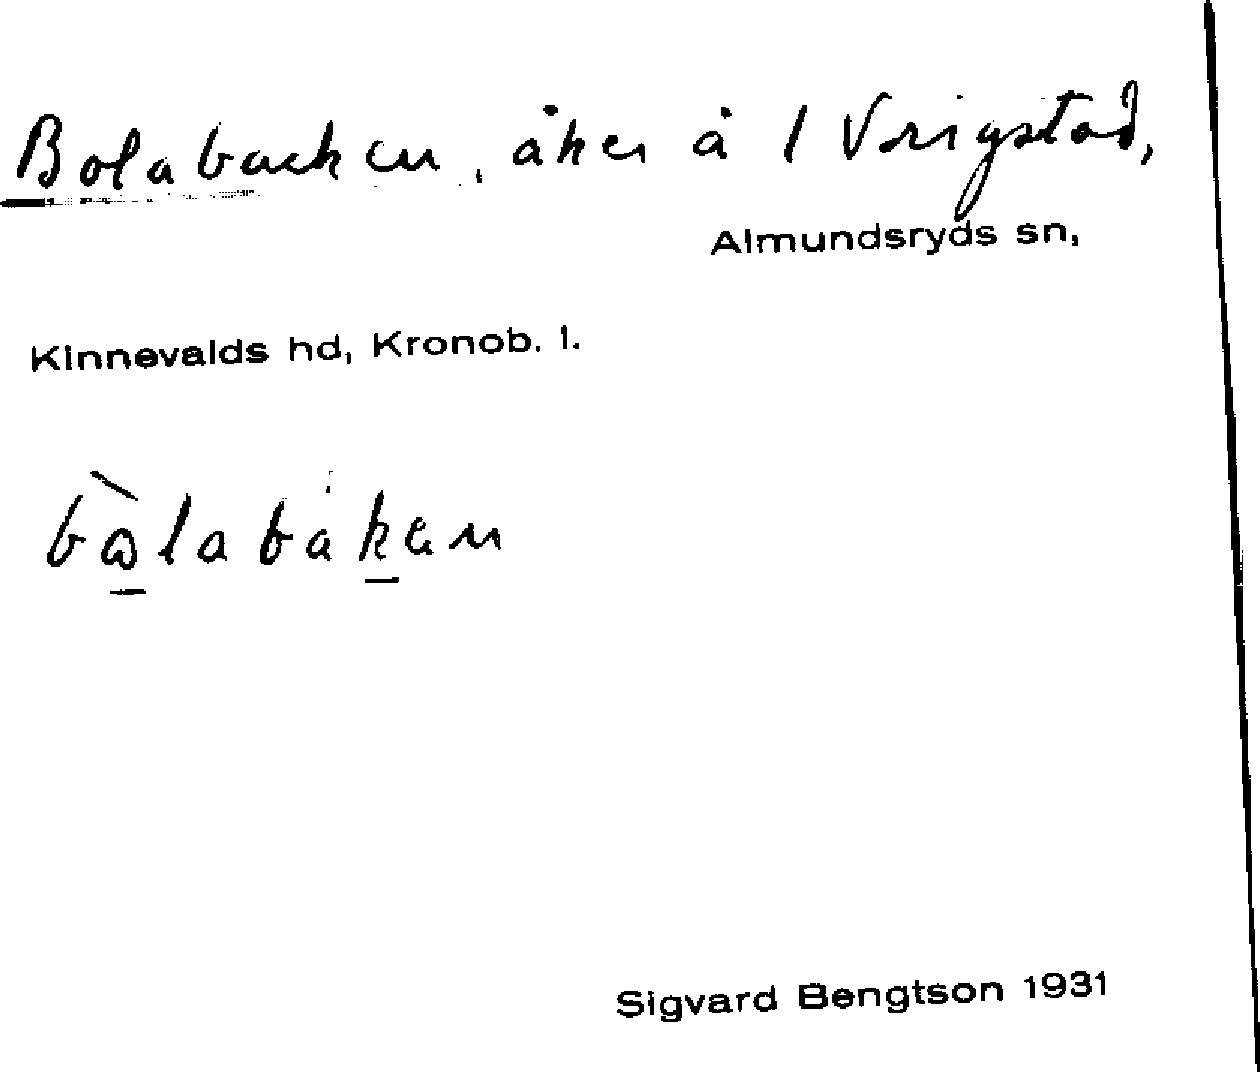 Bolabacken, åker å 1 Vrigstad,
Almundsryds sn,
Kinnevalds hd, Kronob. l.
bòlabakan
Sigvard Bengtson 1931